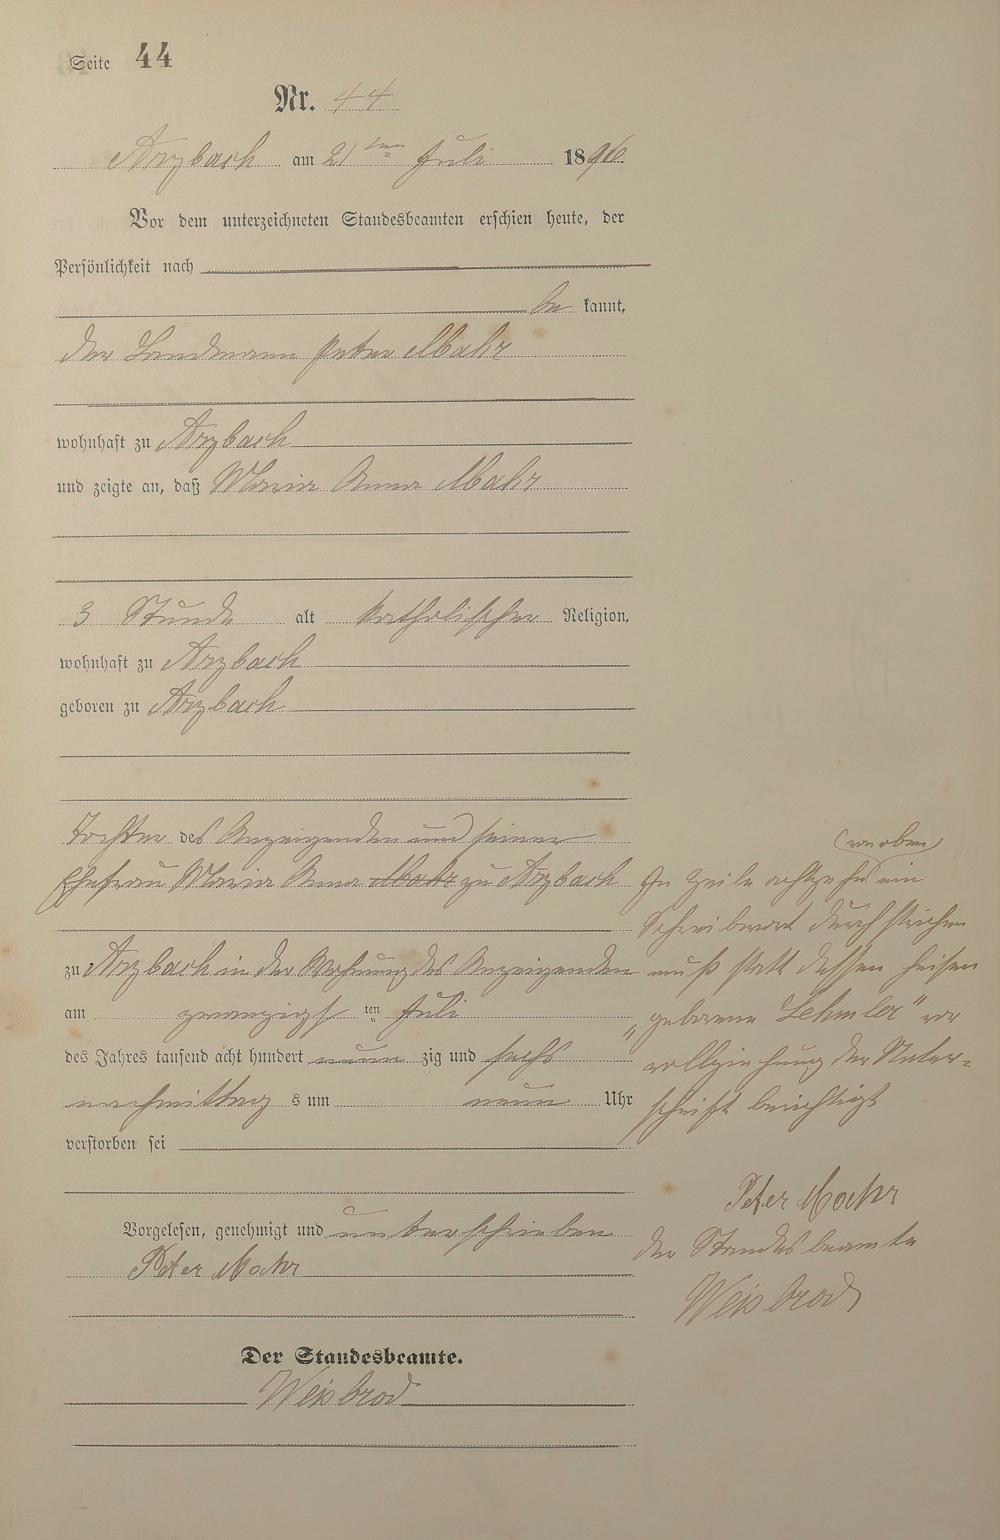 Seite 44
Nr. 44
Arzbach am 21ten Juli 1896
Vor dem unterzeichneten Standesbeamten erschien heute, der
Persönlichkeit nach
be kannt,
der Landmann Peter Mahr
wohnhaft zu Arzbach
und zeigte an, daß Maria Anna Mahr
3 Stunde alt katholischer Religion,
wohnhaft zu Arzbach
geboren zu Arzbach
Tochter des Anzeigenden und seiner
Ehefrau Maria Anna Mahr zu Arzbach
zu Arzbach in der Wohnung des Anzeigenden
am zwanzigst ten Juli
des Jahres tausend acht hundert neun zig und sechs
nachmittag s um neun Uhr
verstorben sei
Vorgelesen, genehmigt und unterschrieben
Peter Mahr
Der Standesbeamte.
Weisbrod
(von oben)
In Zeile achtzehn ein
Schreibwort durchstrichen
muß statt dessen heisen
„geborene Lehmler" vor
vollziehung der Unter-
schrift berichtigt
Peter Mahr
der Standesbeamte
Weisbrod